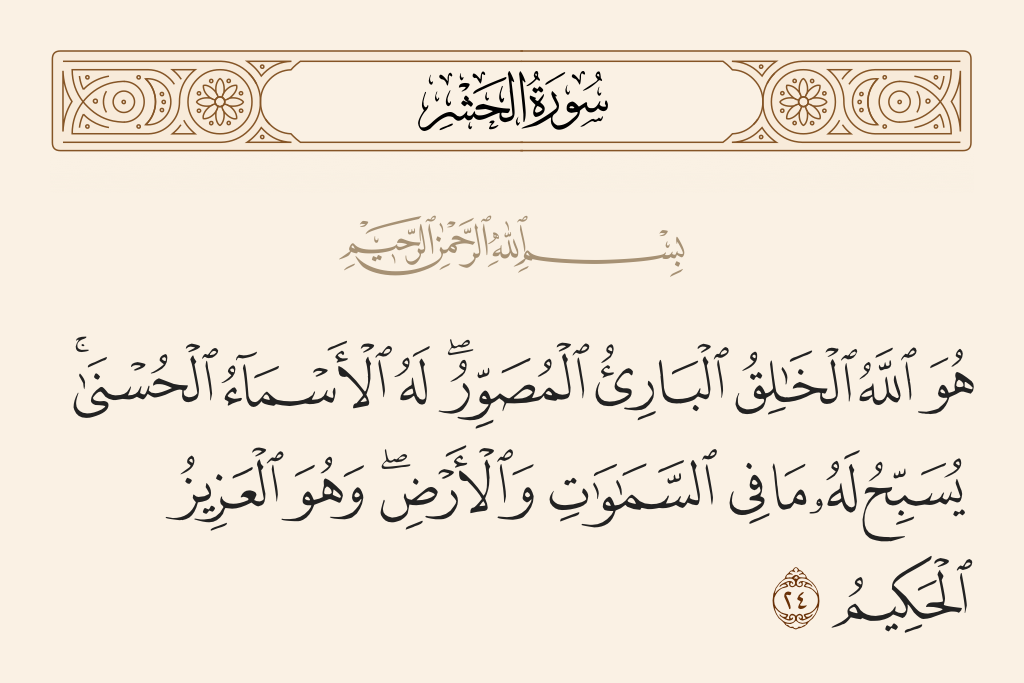 سُورَةُ الحَشْرِ
بِسْمِ ٱللَّهِ ٱلرَّحْمَٰنِ ٱلرَّحِيمِ
هُوَ ٱللَّهُ ٱلْخَٰلِقُ ٱلْبَارِئُ ٱلْمُصَوِّرُ ۖ لَهُ ٱلْأَسْمَآءُ ٱلْحُسْنَىٰ ۚ
يُسَبِّحُ لَهُۥ مَا فِى ٱلسَّمَٰوَٰتِ وَٱلْأَرْضِ ۖ وَهُوَ ٱلْعَزِيزُ
ٱلْحَكِيمُ ٢٤